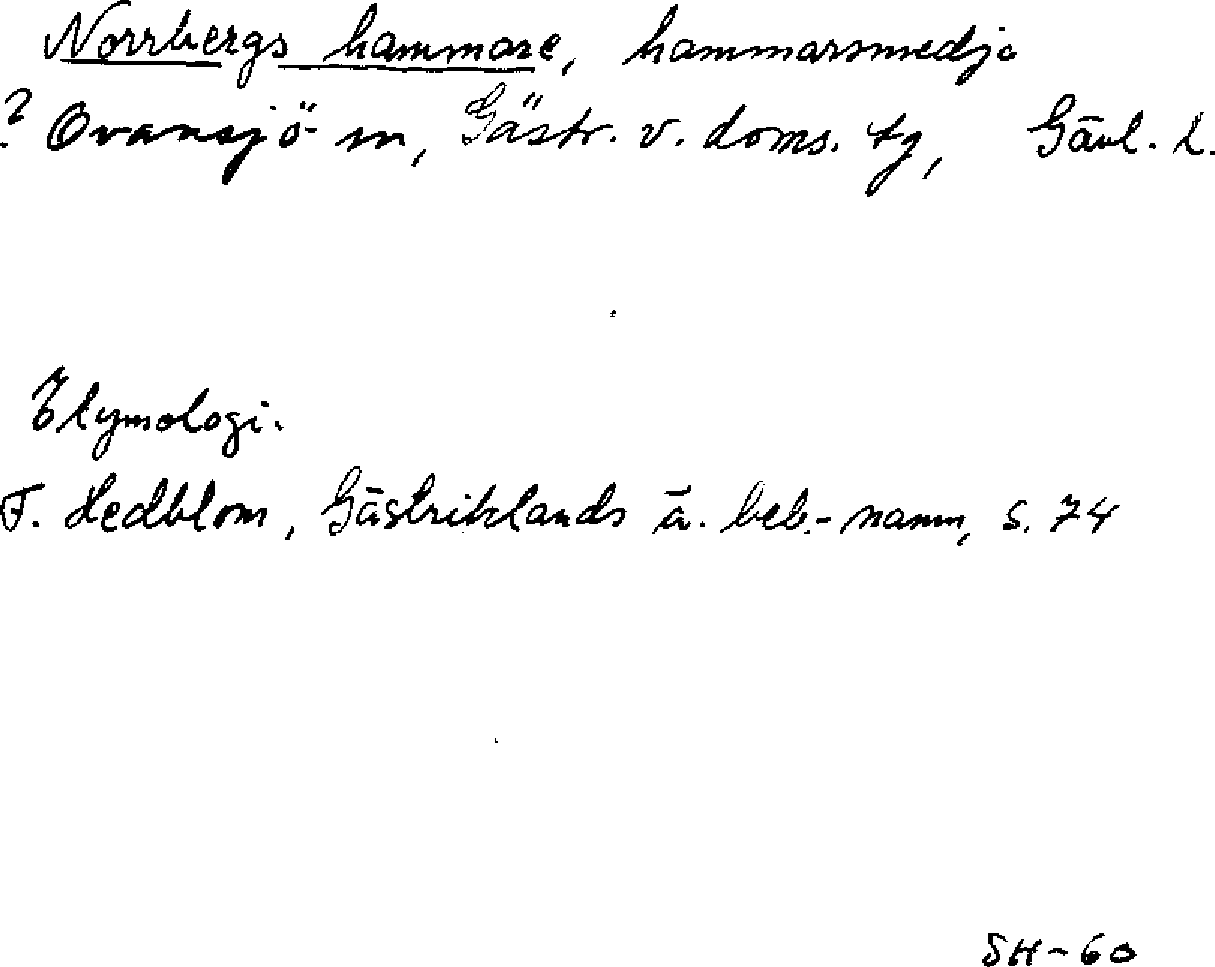 Norrbergs hammare, hammarsmedja
? Ovansjö sn, Gästr. v. doms. tg, Gävl. l.
Etymologi.
F. Hedblom, Gästriklands ä. beb.-namn, s. 74
SH-60